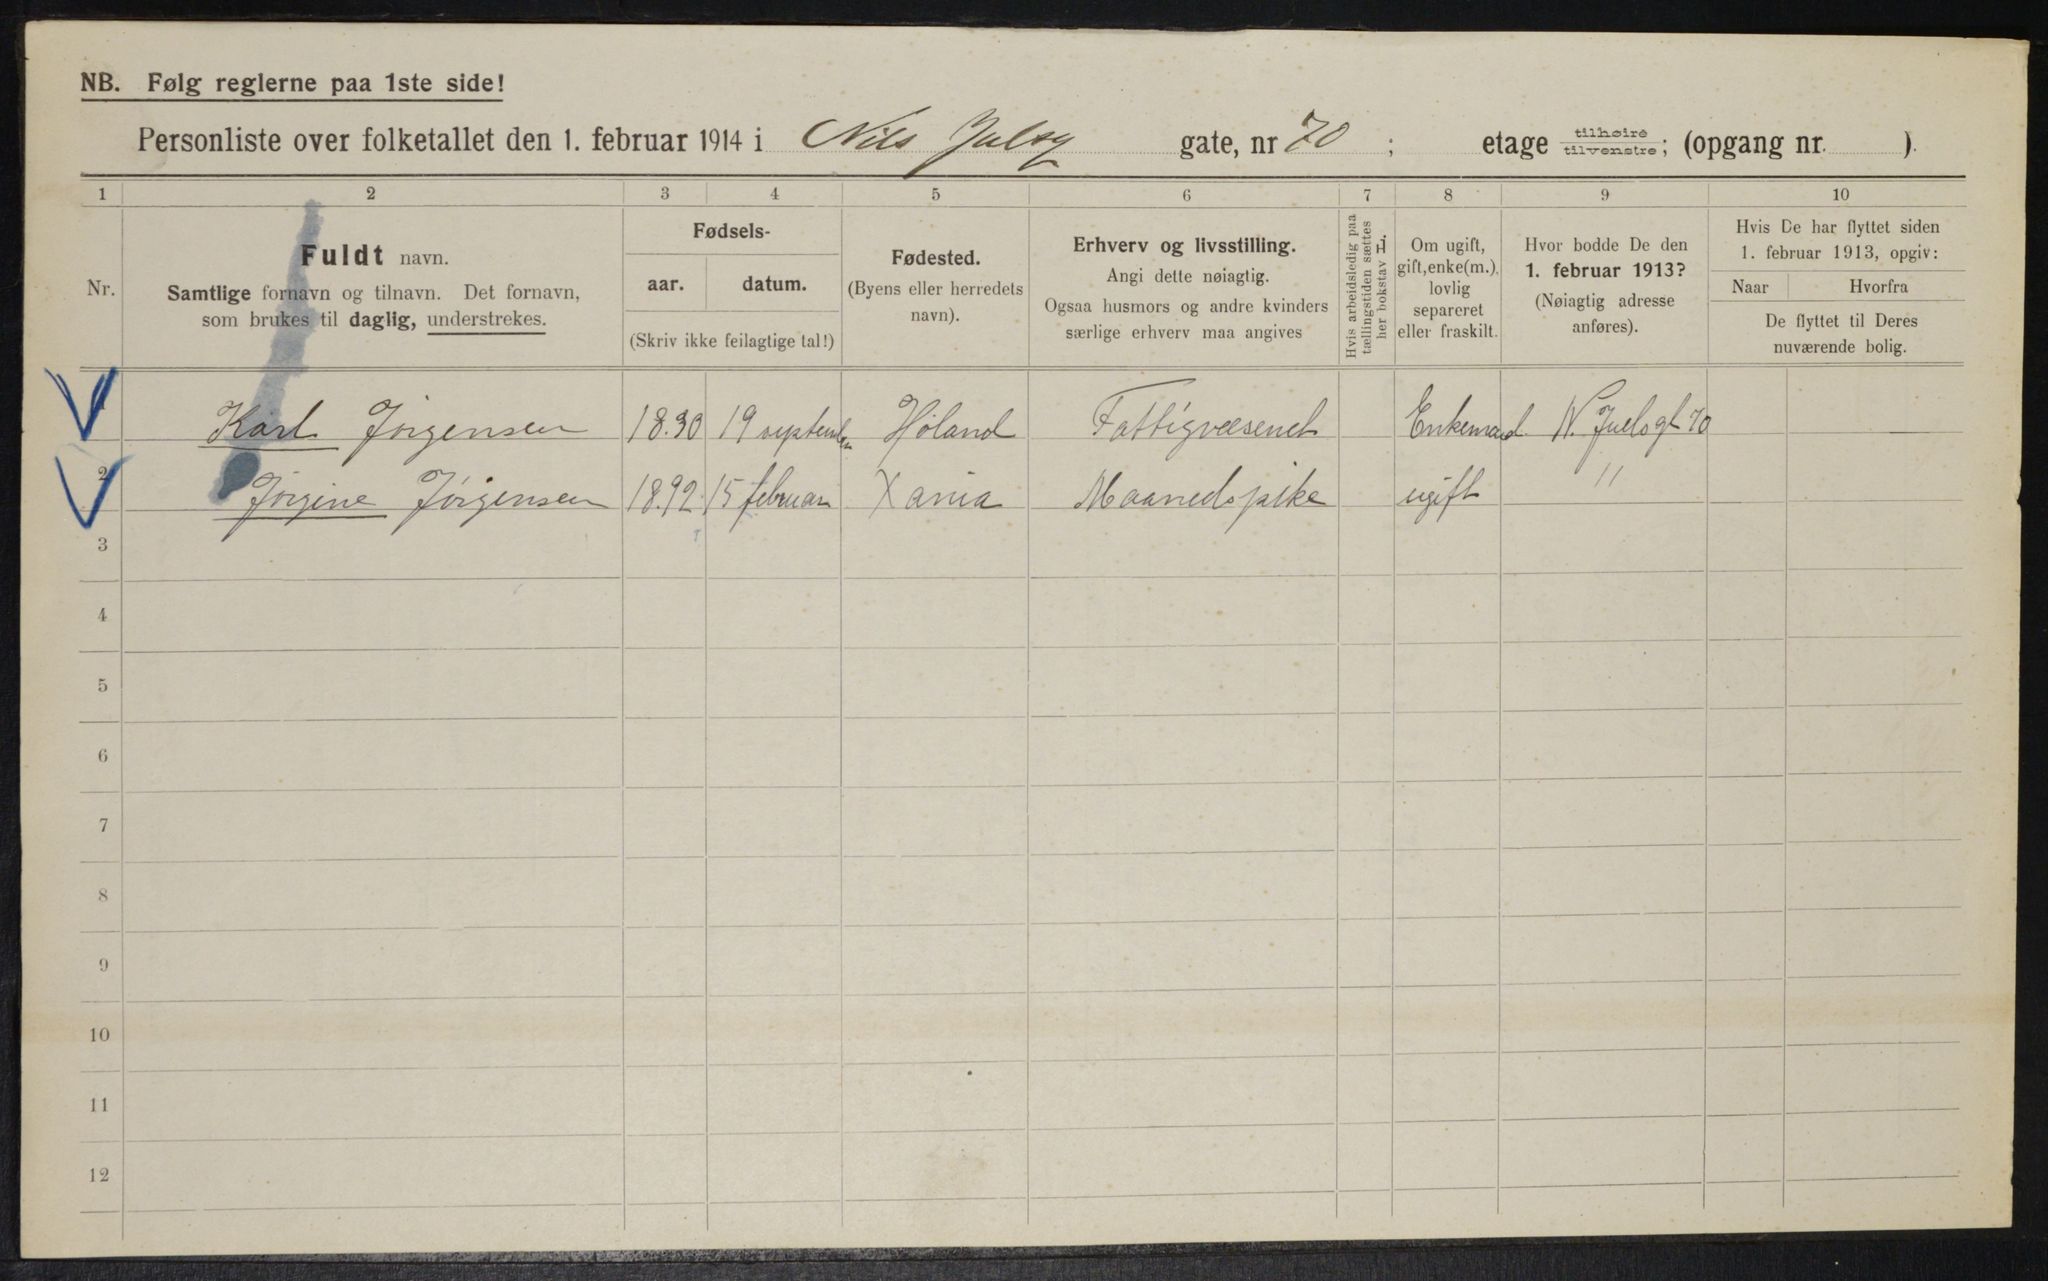 NB. Følg reglerne paa 1ste side!
Personliste over folketallet den 1. februar 1914 i Nils Julsg gate, nr 70 ; etage tilhøire tilvenstre; (opgang nr. ).
1 2 3 4 5 6 7 8 9 10
Nr.
Fuldt navn.
Samtlige fornavn og tilnavn. Det fornavn,
som brukes til daglig, understrekes.
Fødsels-
aar. datum.
(Skriv ikke feilagtige tal!)
Fødested.
(Byens eller herredets
navn).
Erhverv og livsstilling.
Angi dette nøiagtig.
Ogsaa husmors og andre kvinders
særlige erhverv maa angives
Hvis arbeidsledig paa
tællingstiden sættes
her bokstav L.
Om ugift,
gift, enke(m.),
lovlig
separeret
eller fraskilt.
Hvor bodde De den
1. februar 1913?
(Nøiagtig adresse
anføres).
Hvis De har flyttet siden
1. februar 1913, opgiv:
Naar Hvorfra
De flyttet til Deres
nuværende bolig.
1 Karl Jørgensen 18.30 19 september Höland Fattigvæsenet Enkemand N. Juelsgt 70
2 Jørgine Jørgensen 18.92 15 februar Xania Maanedspike ugift "
3
4
5
6
7
8
9
10
11
12